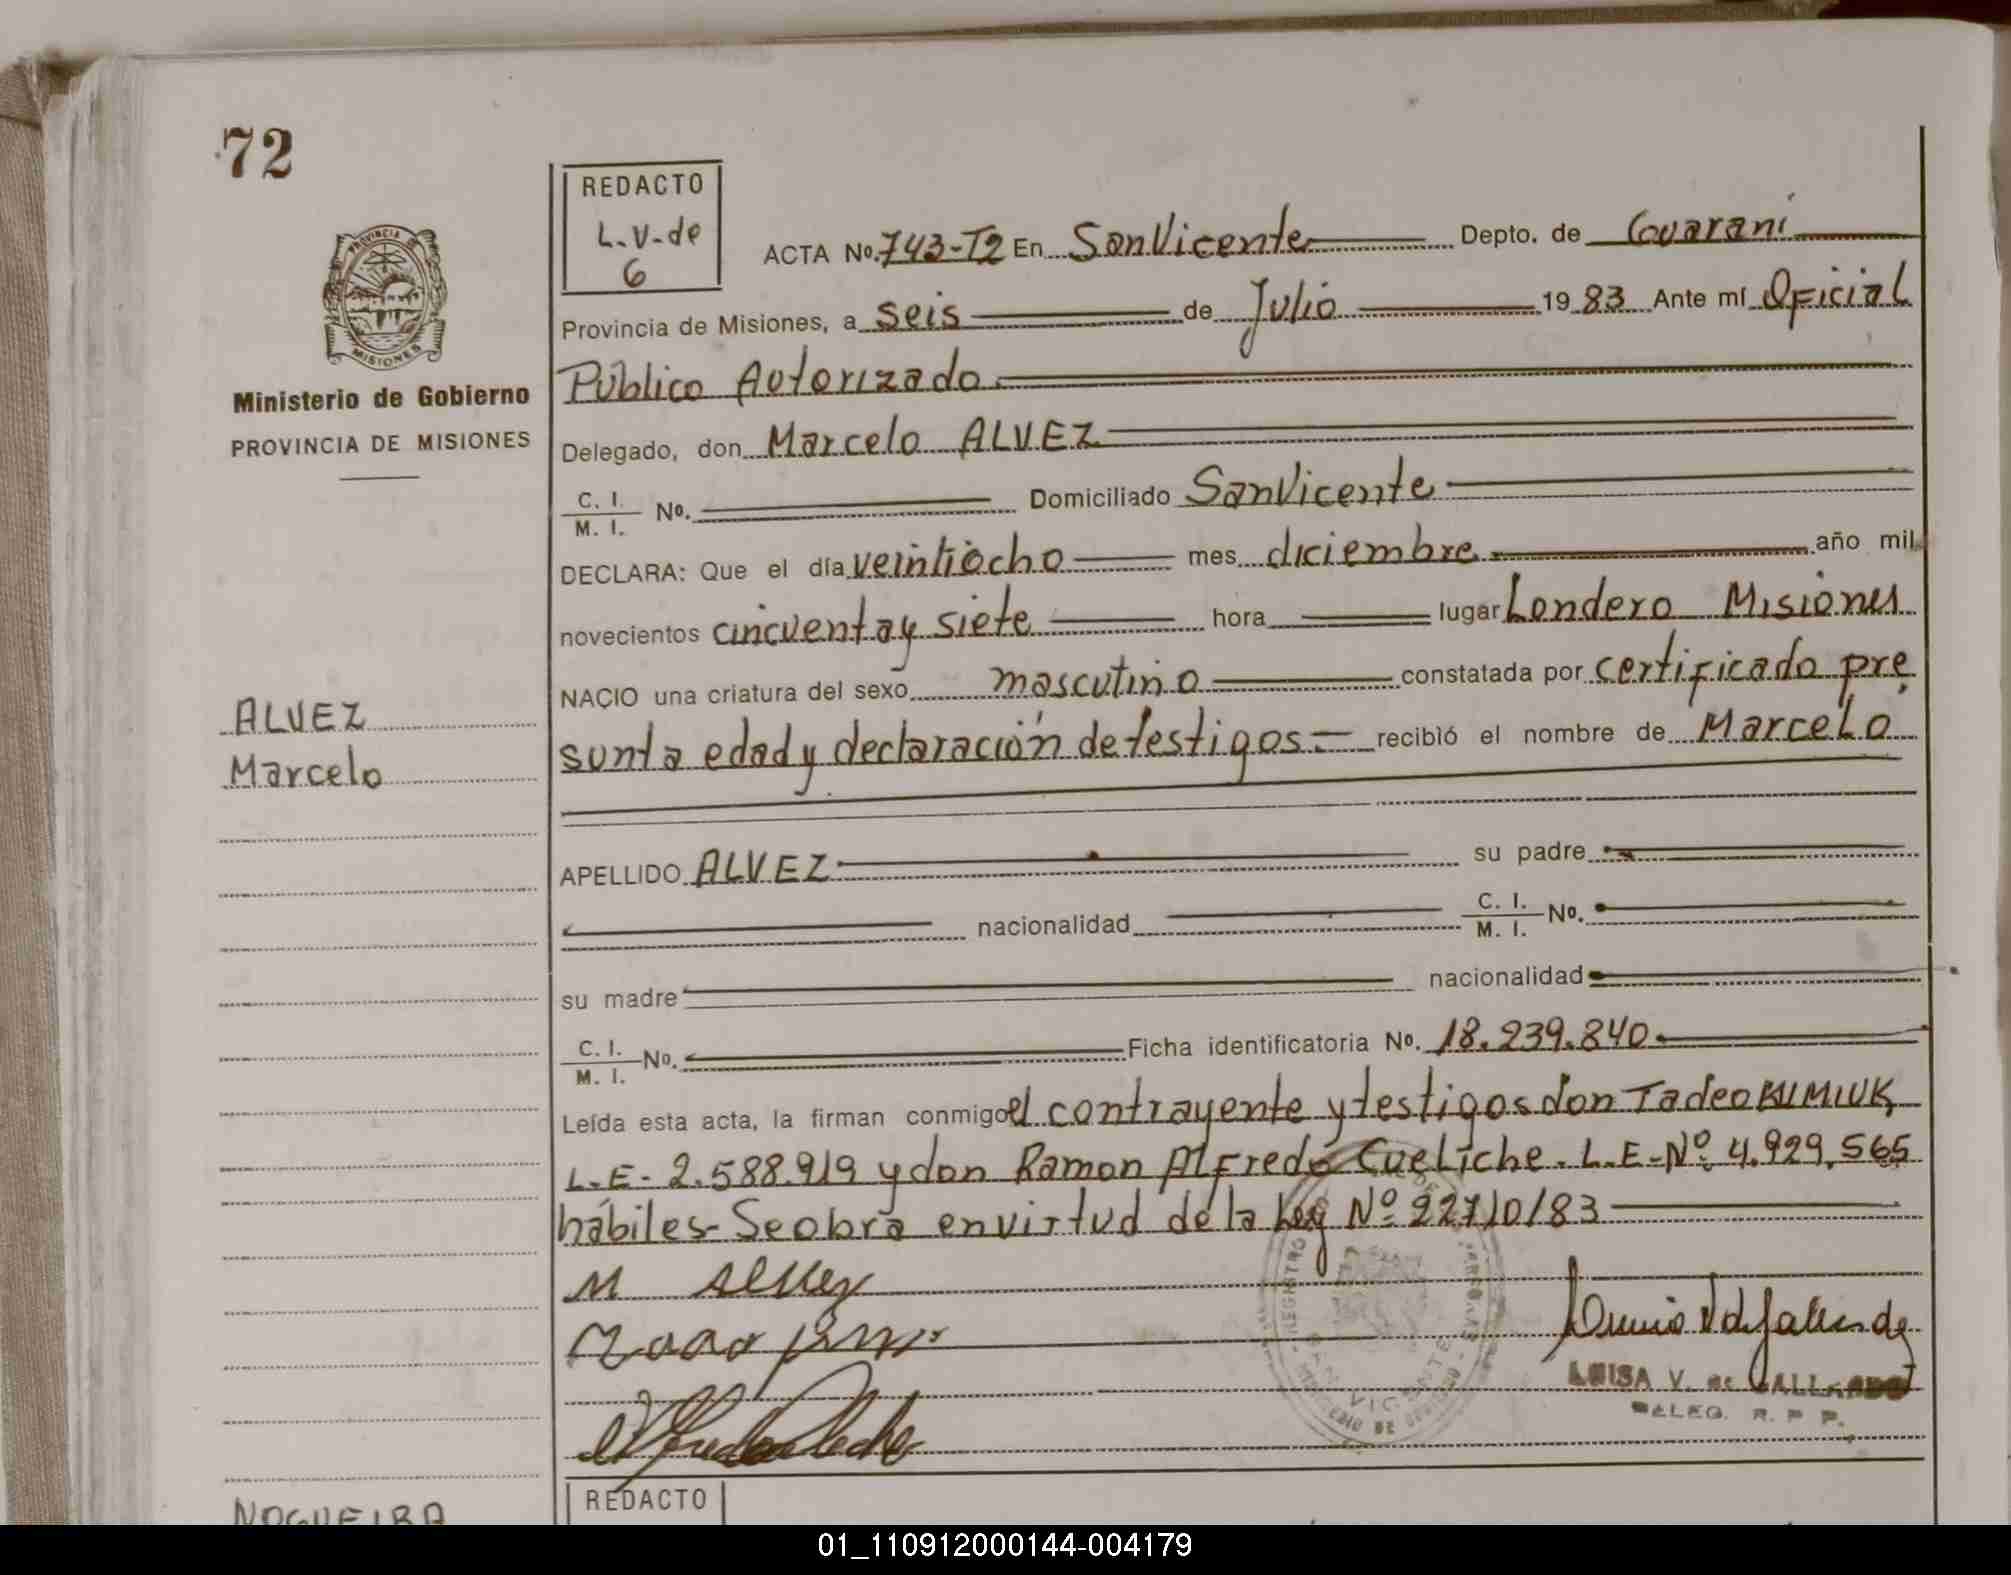 72
REDACTO
L.V.de
6
ACTA No. 743-T2 En San Vicente Depto. de Guaraní
Provincia de Misiones, a seis de Julio 1983 Ante mí Oficial
Público Autorizado
Delegado, don Marcelo ALVEZ
C. I.
M. I. No. Domiciliado San Vicente
DECLARA: Que el día veintiocho mes diciembre año mil
novecientos cincuenta y siete hora lugar Londero Misiones
NACIO una criatura del sexo masculino constatada por certificado pre
sunta edad y declaración de testigos recibió el nombre de Marcelo
APELLIDO ALVEZ su padre
nacionalidad C. I.
M. I. No.
su madre nacionalidad
C. I.
M. I. No. Ficha identificatoria No. 18.239.840
Leída esta acta, la firman conmigo el contrayente y testigos don Tadeo
L.E- 2.588.919 y don Ramon Alfredo Cueliche. L.E-Nº 4.929.565
hábiles- Se obra en virtud de la Ley Nº 2271/0/83
M Alvez
REGISTRO
SAN VICENTE
LUISA V. de GALLARDO
DELEG. R. P. P.
PROVINCIA DE
MISIONES
Ministerio de Gobierno
PROVINCIA DE MISIONES
ALVEZ
Marcelo
REDACTO
NOGUEIRA
01_110912000144-004179